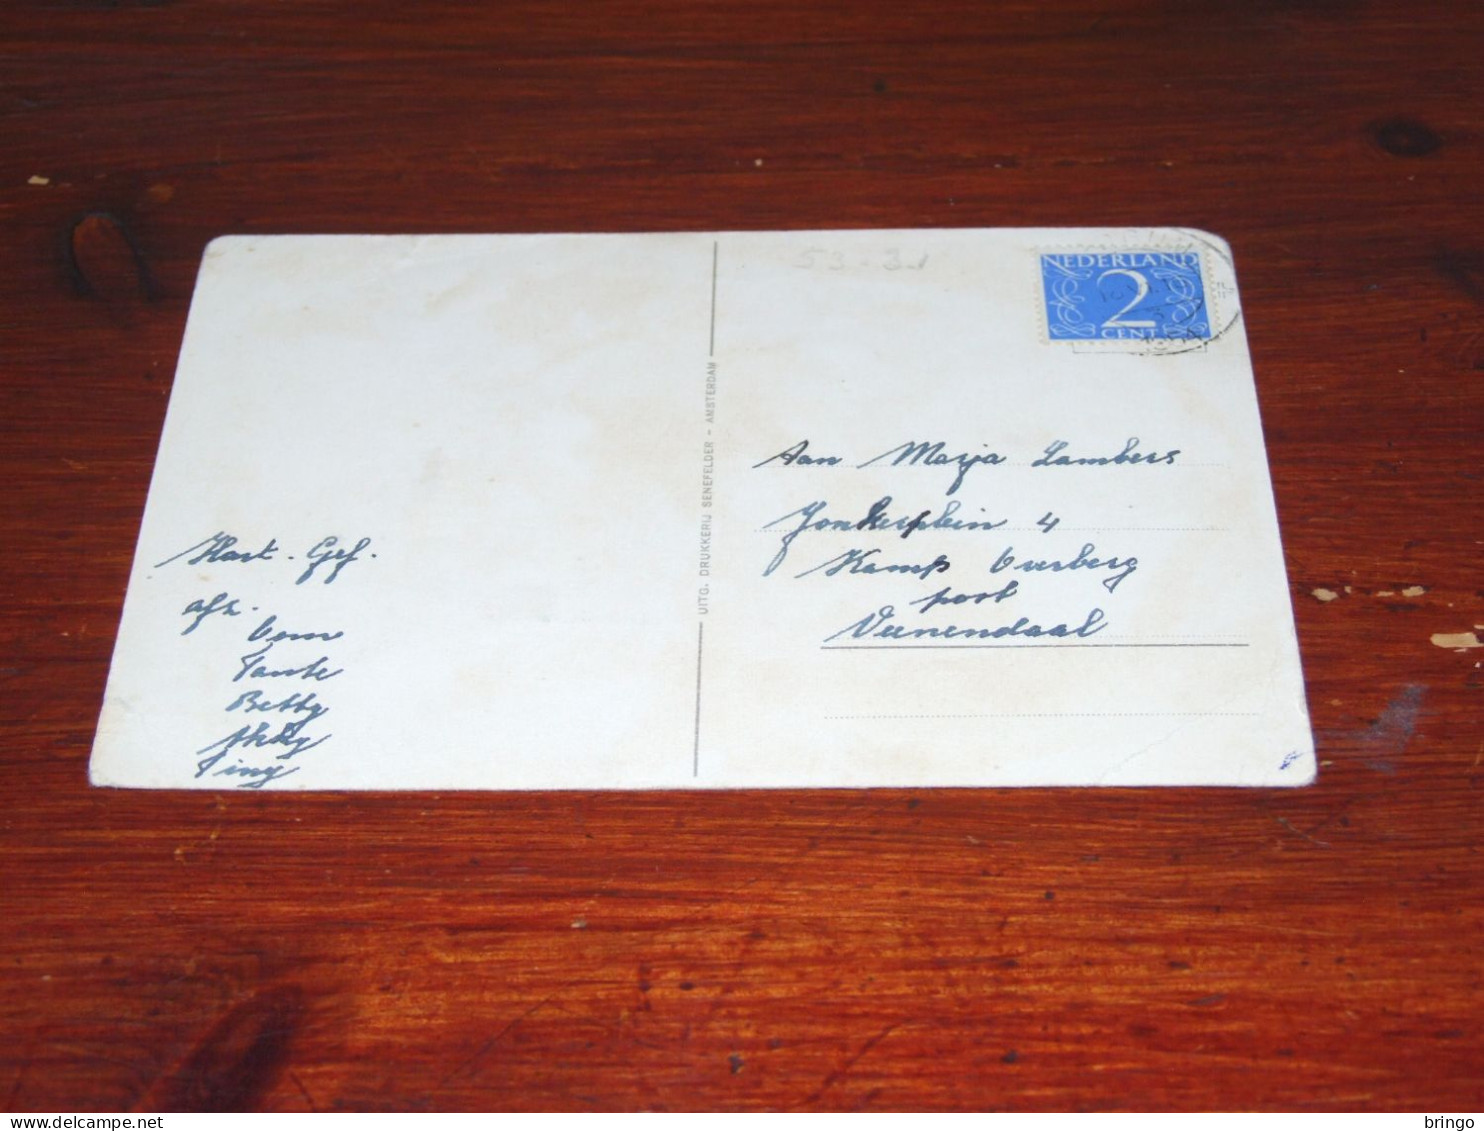 53-31
NEDERLAND
2
CENT
1954
UITG. DRUKKERIJ SENEFELDER - AMSTERDAM
Aan Marja Lambers
Jonkerplein 4
Kamp Overberg
post
Veenendaal
Hart. Gef.
afz.
Oom
Tante
Betty
Tiny
bringo